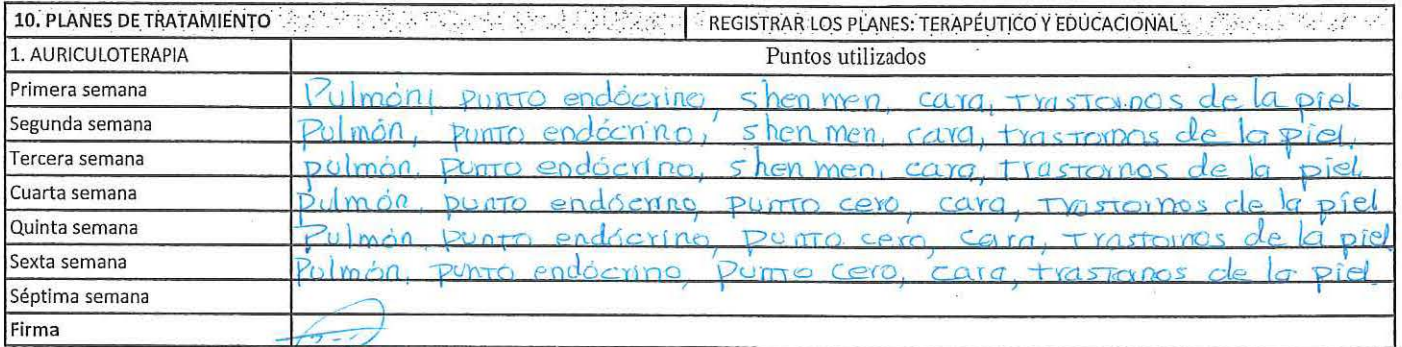 10. PLANES DE TRATAMIENTO REGISTRAR LOS PLANES: TERAPÉUTICO Y EDUCACIONAL
1. AURICULOTERAPIA Puntos utilizados
Primera semana Pulmón, punto endócrino, shen men, cara, trastornos de la piel
Segunda semana Pulmón, punto endócrino, shen men, cara, trastornos de la piel.
Tercera semana pulmón, punto endócrino, shen men, cara, trastornos de la piel
Cuarta semana pulmón, punto endócrino, punto cero, cara, trastornos de la piel
Quinta semana Pulmón, punto endócrino, punto cero, cara, trastornos de la piel
Sexta semana Pulmón, punto endócrino, punto cero, cara, trastornos de la piel.
Séptima semana
Firma